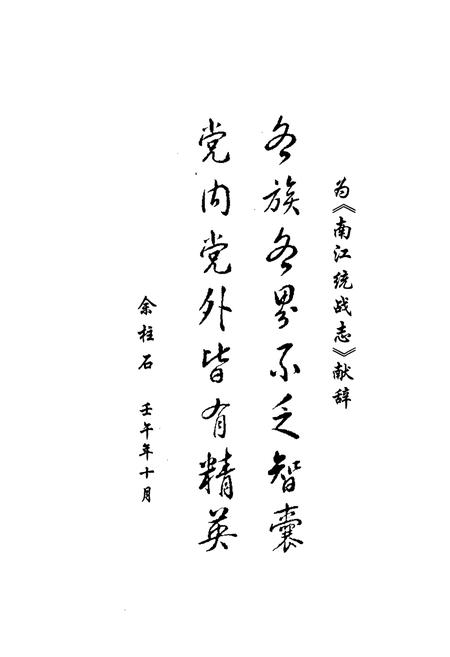 为《南江统战志》献辞
各族各界不乏智囊
党内党外皆有精英
余柱石 壬午年十月